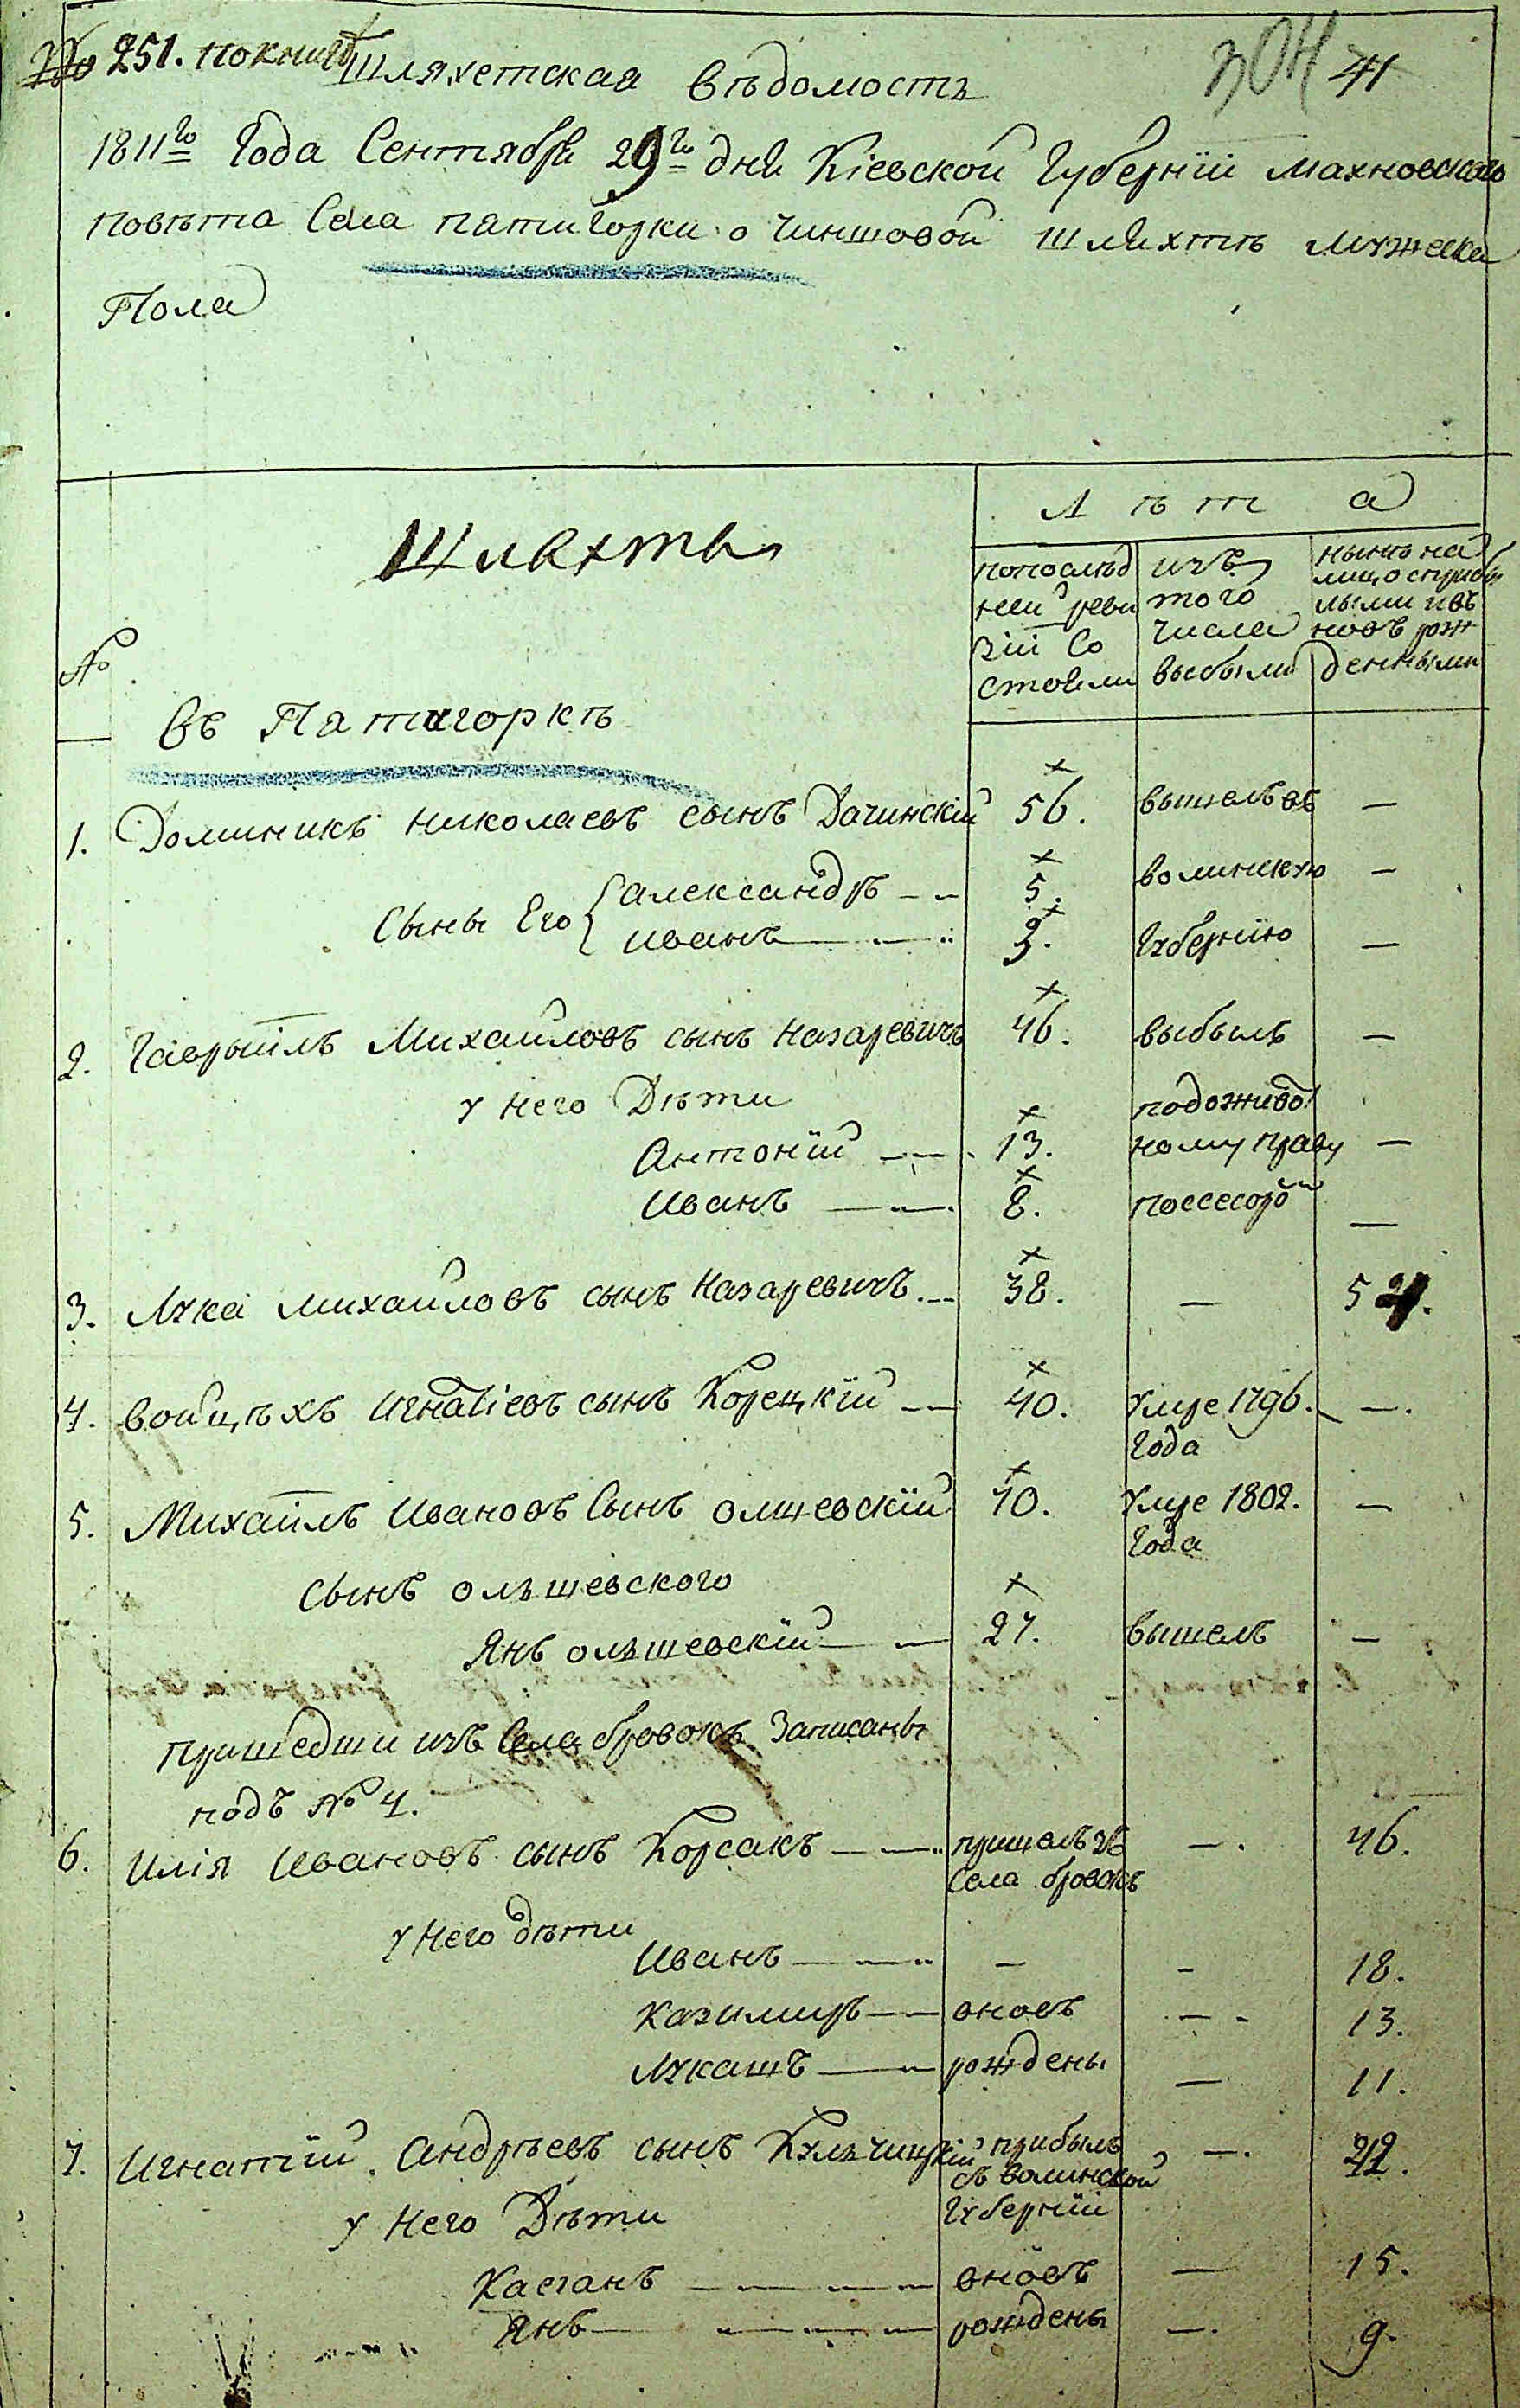 251. по книгѣ
41
Шляхетская вѣдомость
1811го Года Сентября 29го дня Кіевской Губерніи Махновского
повѣта Села пятигорки о чиншовой шляхтѣ мужеска
Пола
Шляхты
Л ѣ т а
№
попослѣд
ней реви
зіи Со
стояли
изъ
того
числа
выбыли
нынѣ на
лицо с прибы
лыми и въ
новъ рож
денными
Въ Пятигоркѣ
1. Доминикъ Николаевъ сынъ Дачинскій 56. вышелъ въ —
Сыны Его { Александръ — 5. волинскую —
Иванъ — 3. Губернію —
2. Гаврыилъ Михайловъ сынъ Назаревичъ 46. выбылъ —
у Него Дѣти подоживо
Антоній — 13. ному праву —
Иванъ — 8. поссесоромъ —
3. Лука Михайловъ сынъ Назаревичъ — 38. —
4. войцѣхъ Игнатіевъ сынъ Корецкій — 40. Умре 1796. —.
Года
5. Михаилъ Ивановъ Сынъ олшевскій 70. Умре 1802. —
Года
сынъ ольшевского
Янъ ольшевскій — 27. вышелъ —
пришедши изъ Села бровокъ Записаны
подъ № 4.
6. Илія Ивановъ сынъ Корсакъ — пришелъ зъ —. 46.
Села бровокъ
у Него дѣти
Иванъ — — - 18.
Казимиръ — вновъ — 13.
Лукашъ — рождены — 11.
7. Игнатій Андрѣевъ сынъ Кульчицкій прибылъ —. 42.
съ волинской
Губерніи
у Него Дѣти
Каетанъ — вновъ — 15.
Янъ — рождены —. 9.